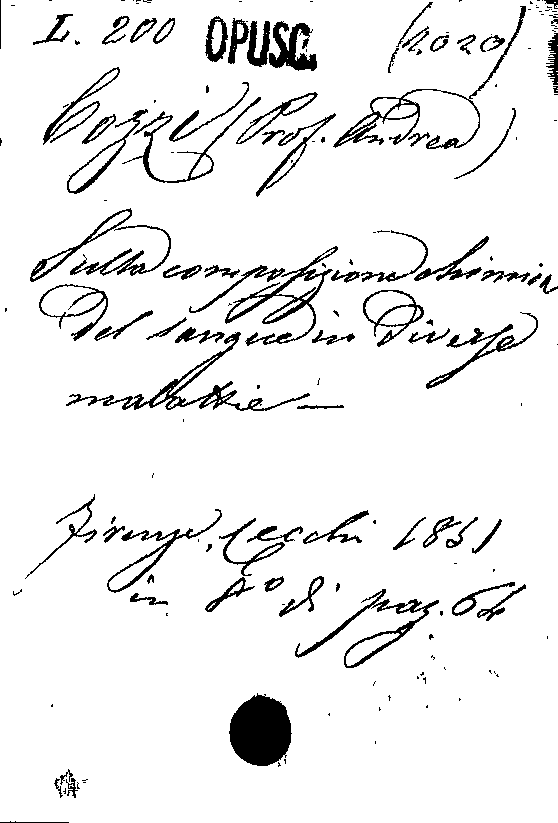 L. 200 OPUSC. (2020)
Cozzi (Prof. Andrea)
Sulla composizione chimica
del sangue in diverse
malattie —
Firenze, Cecchi 1851
in 8º di pag. 64